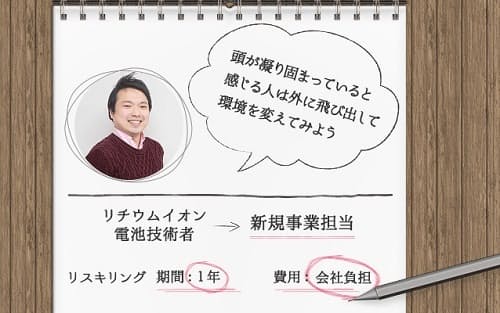 頭が凝り固まっていると
感じる人は外に飛び出して
環境を変えてみよう
リチウムイオン
電池技術者
→ 新規事業担当
リスキリング 期間：1年 費用：会社負担